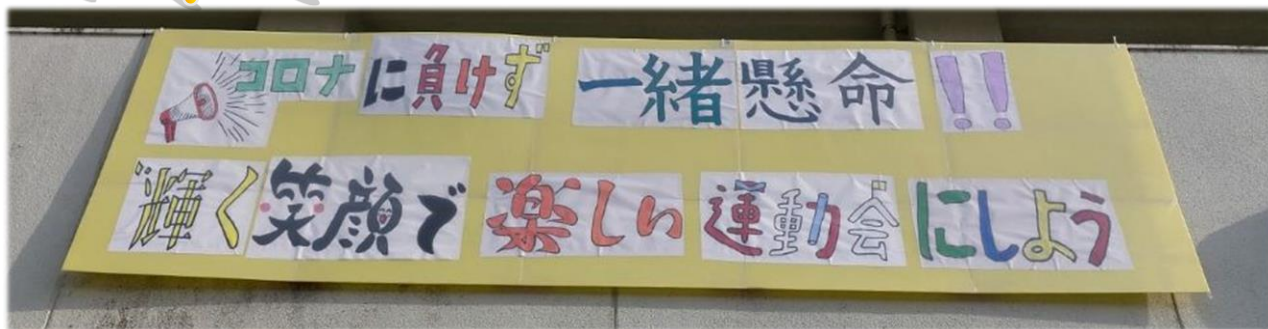 コロナに負けず 一緒懸命!!
輝く笑顔で 楽しい 運動会 にしよう